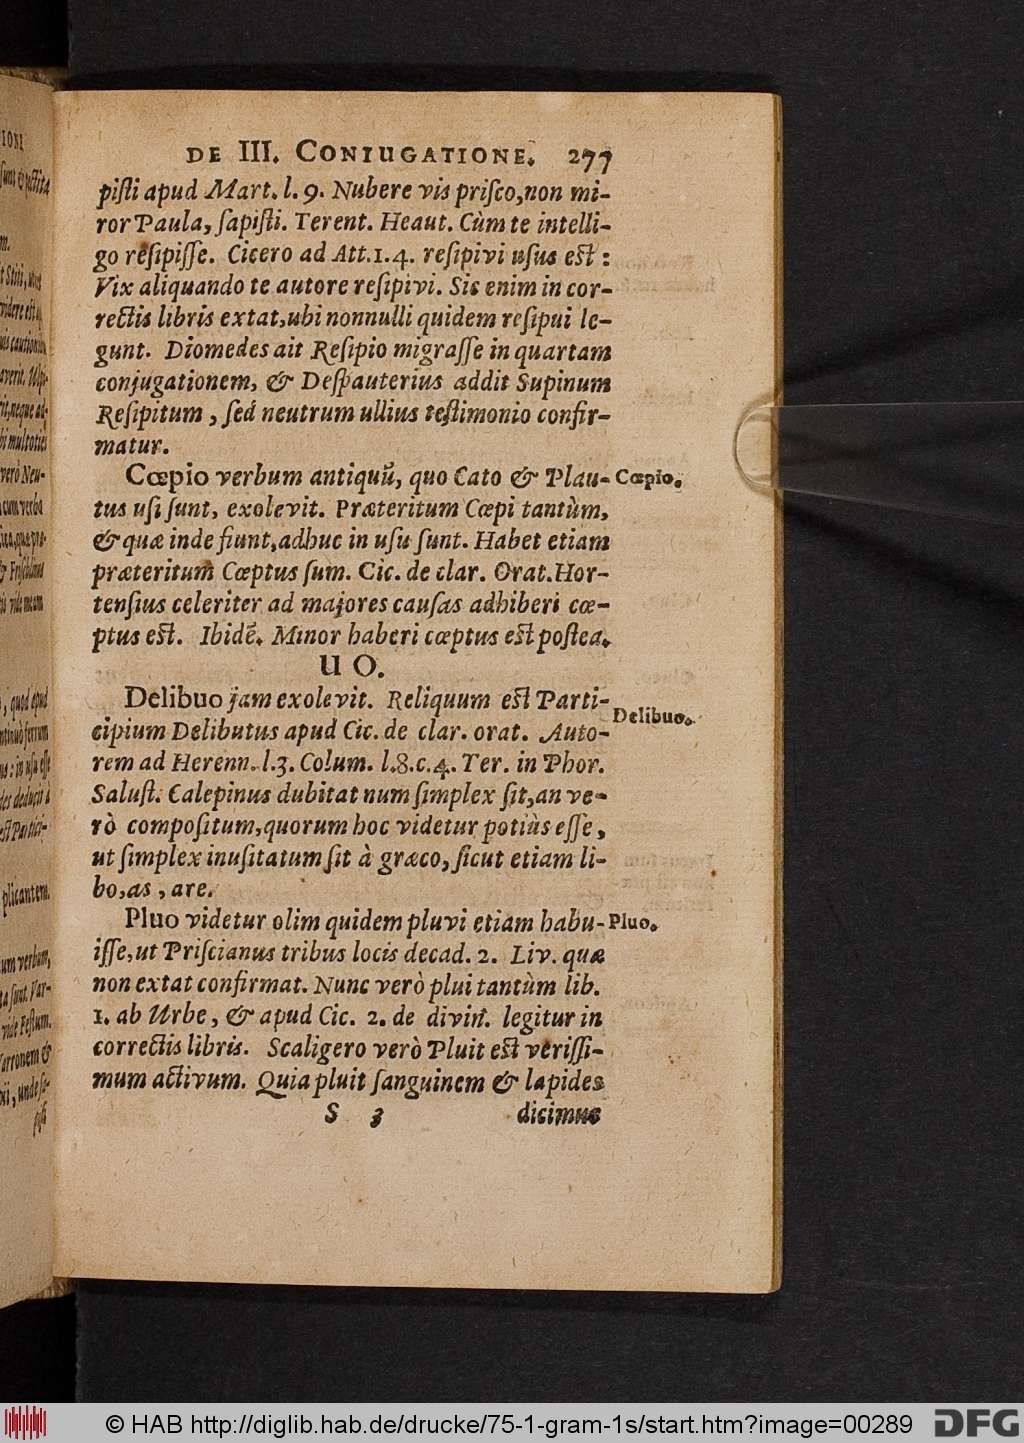 DE III. CONIUGATIONE. 277
piſti apud Mart. l. 9. Nubere vis priſco, non mi-
ror Paula, ſapiſti. Terent. Heaut. Cùm te intelli-
go reſipiſſe. Cicero ad Att. 1. 4. reſipivi uſus eſt :
Vix aliquando te autore reſipivi. Sic enim in cor-
rectis libris extat, ubi nonnulli quidem reſipui le-
gunt. Diomedes ait Reſipio migraſſe in quartam
conjugationem, & Deſpauterius addit Supinum
Reſipitum, ſed neutrum ullius teſtimonio confir-
matur.
Cœpio verbum antiquũ, quo Cato & Plau- Cœpio.
tus uſi ſunt, exolevit. Præteritum Cœpi tantùm,
& quæ inde fiunt, adhuc in uſu ſunt. Habet etiam
præteritum Cœptus ſum. Cic. de clar. Orat. Hor-
tenſius celeriter ad majores cauſas adhiberi cœ-
ptus eſt. Ibidẽ. Minor haberi cœptus eſt poſtea.
UO.
Delibuo jam exolevit. Reliquum eſt Parti-
Delibuo.
cipium Delibutus apud Cic. de clar. orat. Auto-
rem ad Herenn. l. 3. Colum. l. 8. c. 4. Ter. in Phor.
Saluſt. Calepinus dubitat num ſimplex ſit, an ve-
rò compoſitum, quorum hoc videtur potiùs eſſe,
ut ſimplex inuſitatum ſit à græco, ſicut etiam li-
bo, as, are.
Pluo videtur olim quidem pluvi etiam habu- Pluo.
iſſe, ut Priſcianus tribus locis decad. 2. Liv. quæ
non extat confirmat. Nunc verò plui tantùm lib.
1. ab Urbe, & apud Cic. 2. de divin. legitur in
correctis libris. Scaligero verò Pluit eſt veriſſi-
mum activum. Quia pluit ſanguinem & lapides
S 3 dicimus
© HAB http://diglib.hab.de/drucke/75-1-gram-1s/start.htm?image=00289 DFG